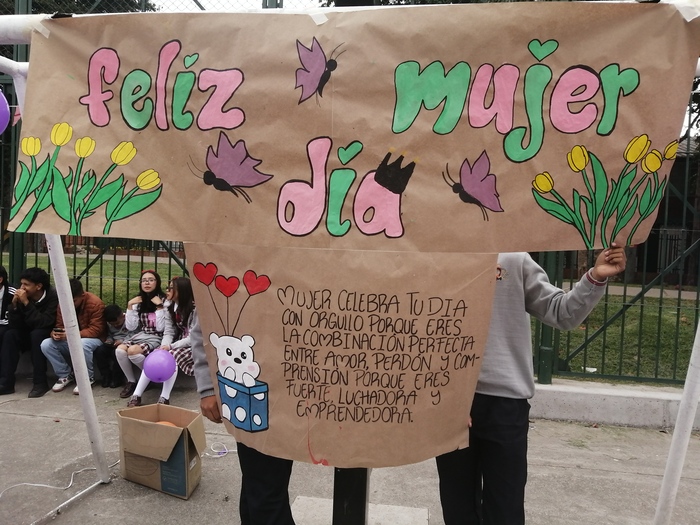 feliz mujer
día
MUJER CELEBRA TU DIA
CON ORGULLO PORQUE ERES
LA COMBINACIÓN PERFECTA
ENTRE AMOR, PERDÓN Y COM-
PRENSIÓN PORQUE ERES
FUERTE LUCHADORA Y
EMPRENDEDORA.